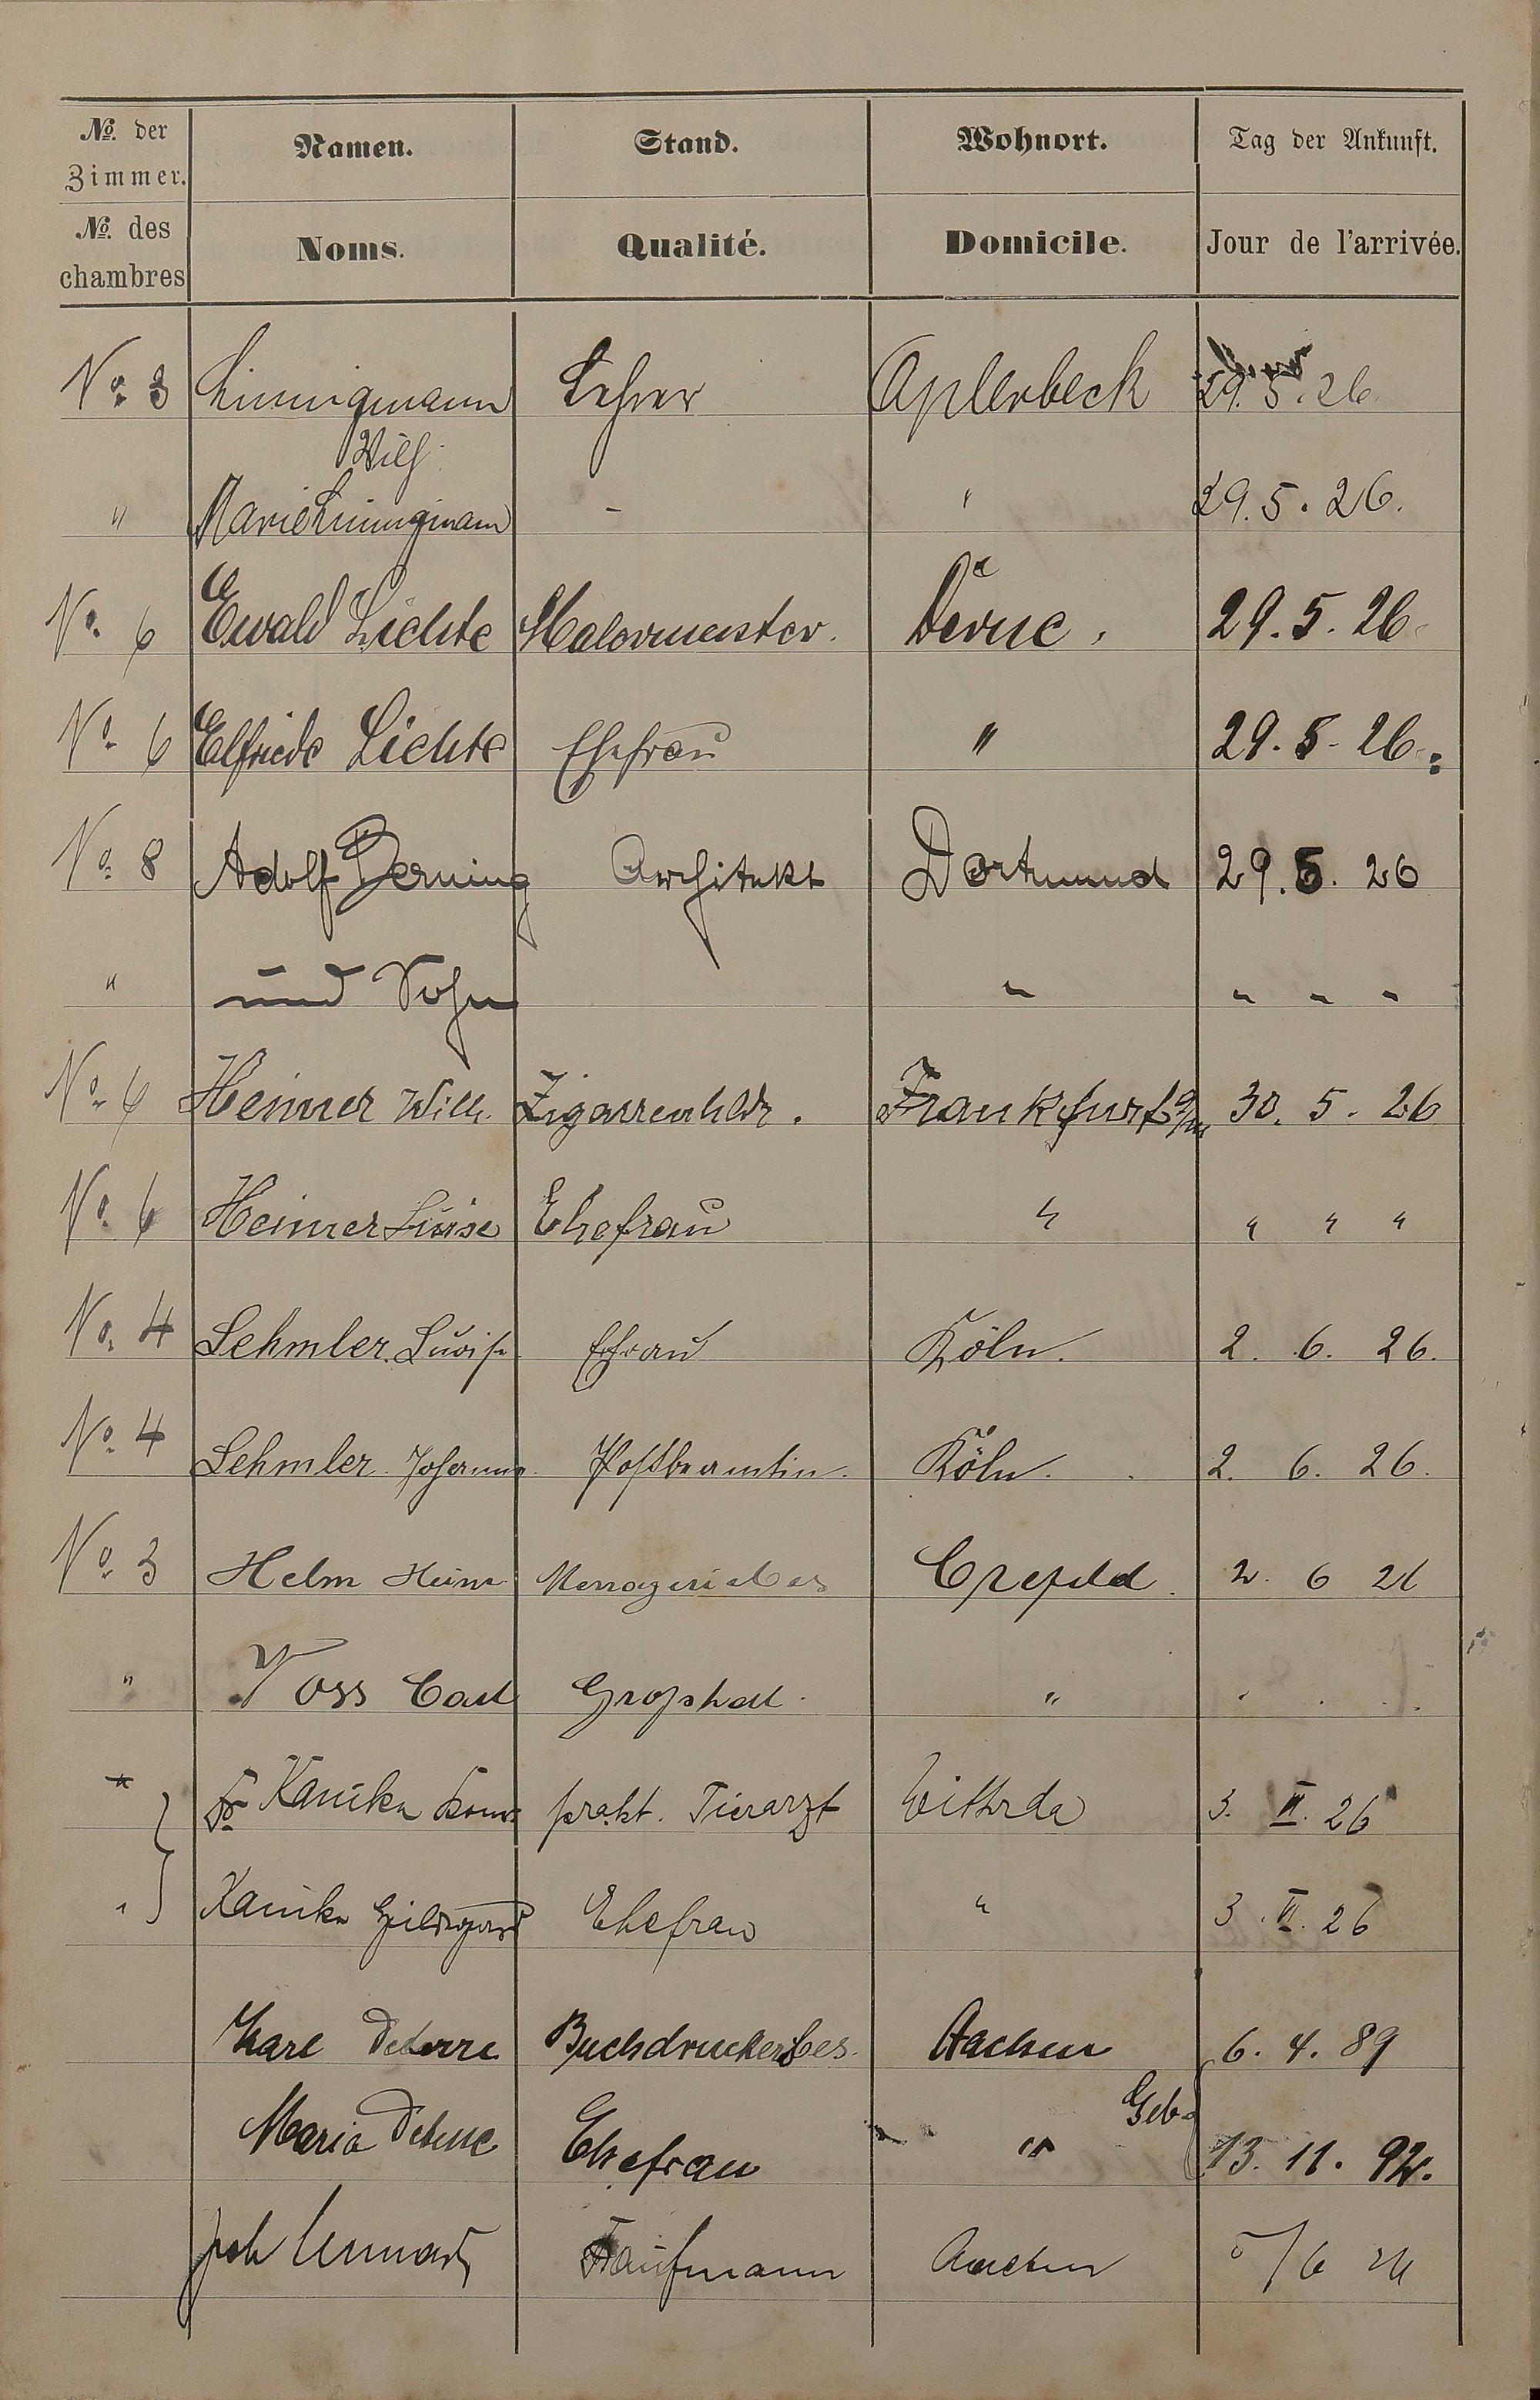 No. der Zimmer. Namen. Stand. Wohnort. Tag der Ankunft.
No. des chambres Noms. Qualité. Domicile. Jour de l'arrivée.
No. 3 Linnigmann Lehrer Aplerbeck 29.5.26.
Wilh.
" Marie Linnigmann - " 29.5.26.
No. 6 Ewald Lichte Malermeister. Derne. 29.5.26.
No. 6 Elfriede Lichte Ehefrau " 29.5.26.
No. 8 Adolf Berning Architekt Dortmund 29.5.26
" und Sohn " " " "
No. 6 Heimer Wilh. Zigarrenhldr. Frankfurt a/M 30.5.26
No. 6 Heimer Luise Ehefrau " " " "
No. 4 Lehmler Luise Ehfrau Köln. 2. 6. 26.
No. 4 Lehmler Johanna Postbeamtin. Köln. 2. 6. 26.
No. 3 Helm Heinr Crefeld. 2. 6 26
" Voss Carl Grosshdl. " " " "
" Dr. prakt. Tierarzt 3. VI. 26
" Hildegard Ehefrau " 3. VI. 26
Karl Buchdruckereibes. Aachen 6. 4. 89
Geb.
Maria Ehefrau " 13. 11. 92.
Joh Lennartz Kaufmann Aachen 5/6 26